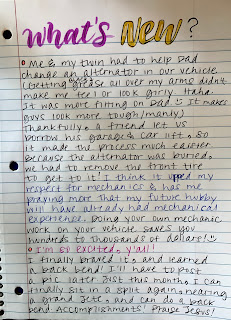 What's New?
• Me & my twin had to help Dad
change an alternator in our vehicle.
(Getting grease all over my arms didn't
make me feel or look girly. Haha.
It was more fitting on Dad. It makes
guys look more tough/manly)
Thankfully, a friend let us
borrow his garage & car lift, so
it made the process much easier
because the alternator was buried.
We had to remove the front tire
to get to it! I think it upped my
respect for mechanics & has me
praying more that my future hubby
will have already had mechanical
experience. Doing your own mechanic
work on your vehicle saves you
hundreds to thousands of dollars!
• I'm so excited, y'all!
I finally braved it, and learned
a back bend! I'll have to post
a pic later just this month. I can
finally sit in a split again, nearing
a grand jeté, and can do a back
bend Accomplishments! Praise Jesus!